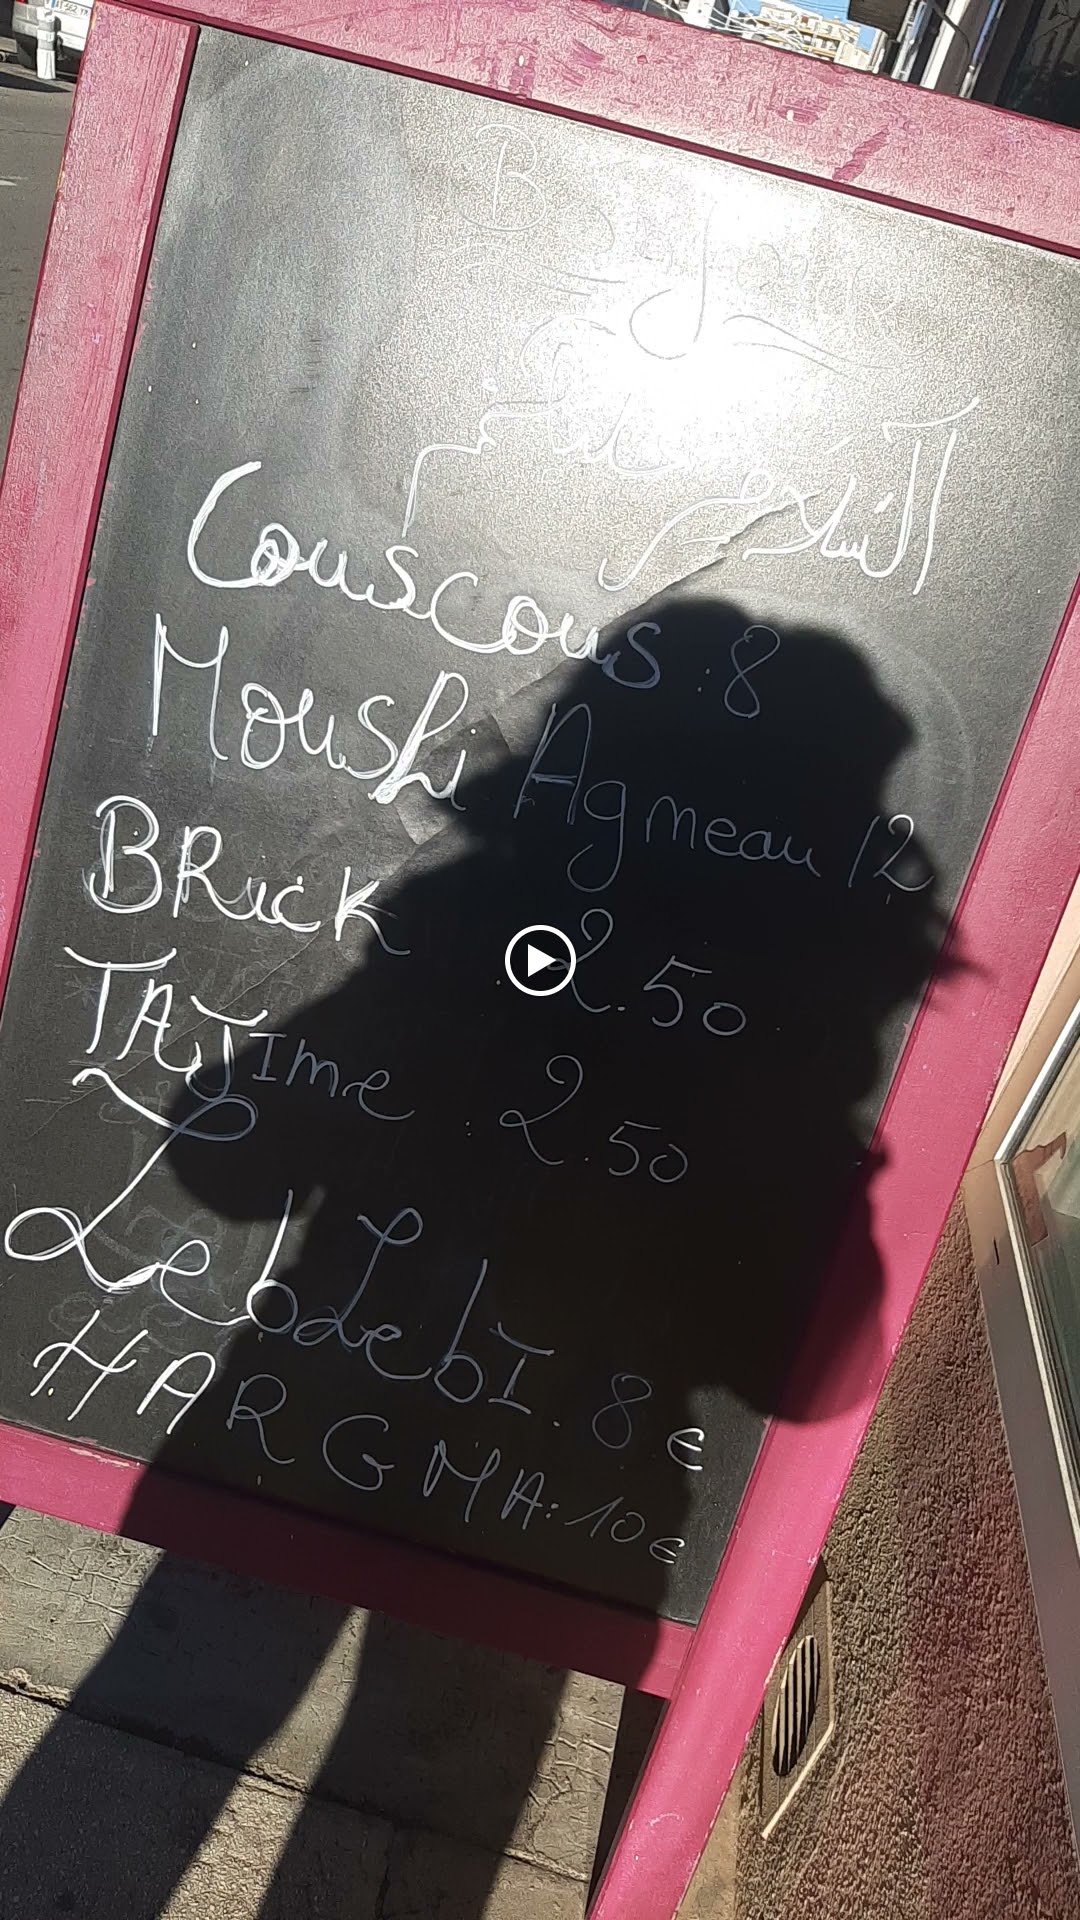 السلام عليكم
Couscous : 8
Moushi Agmeau 12
BRick : 2.50
TAJIme : 2.50
LebLebI. 8 €
HARGMA: 10 €